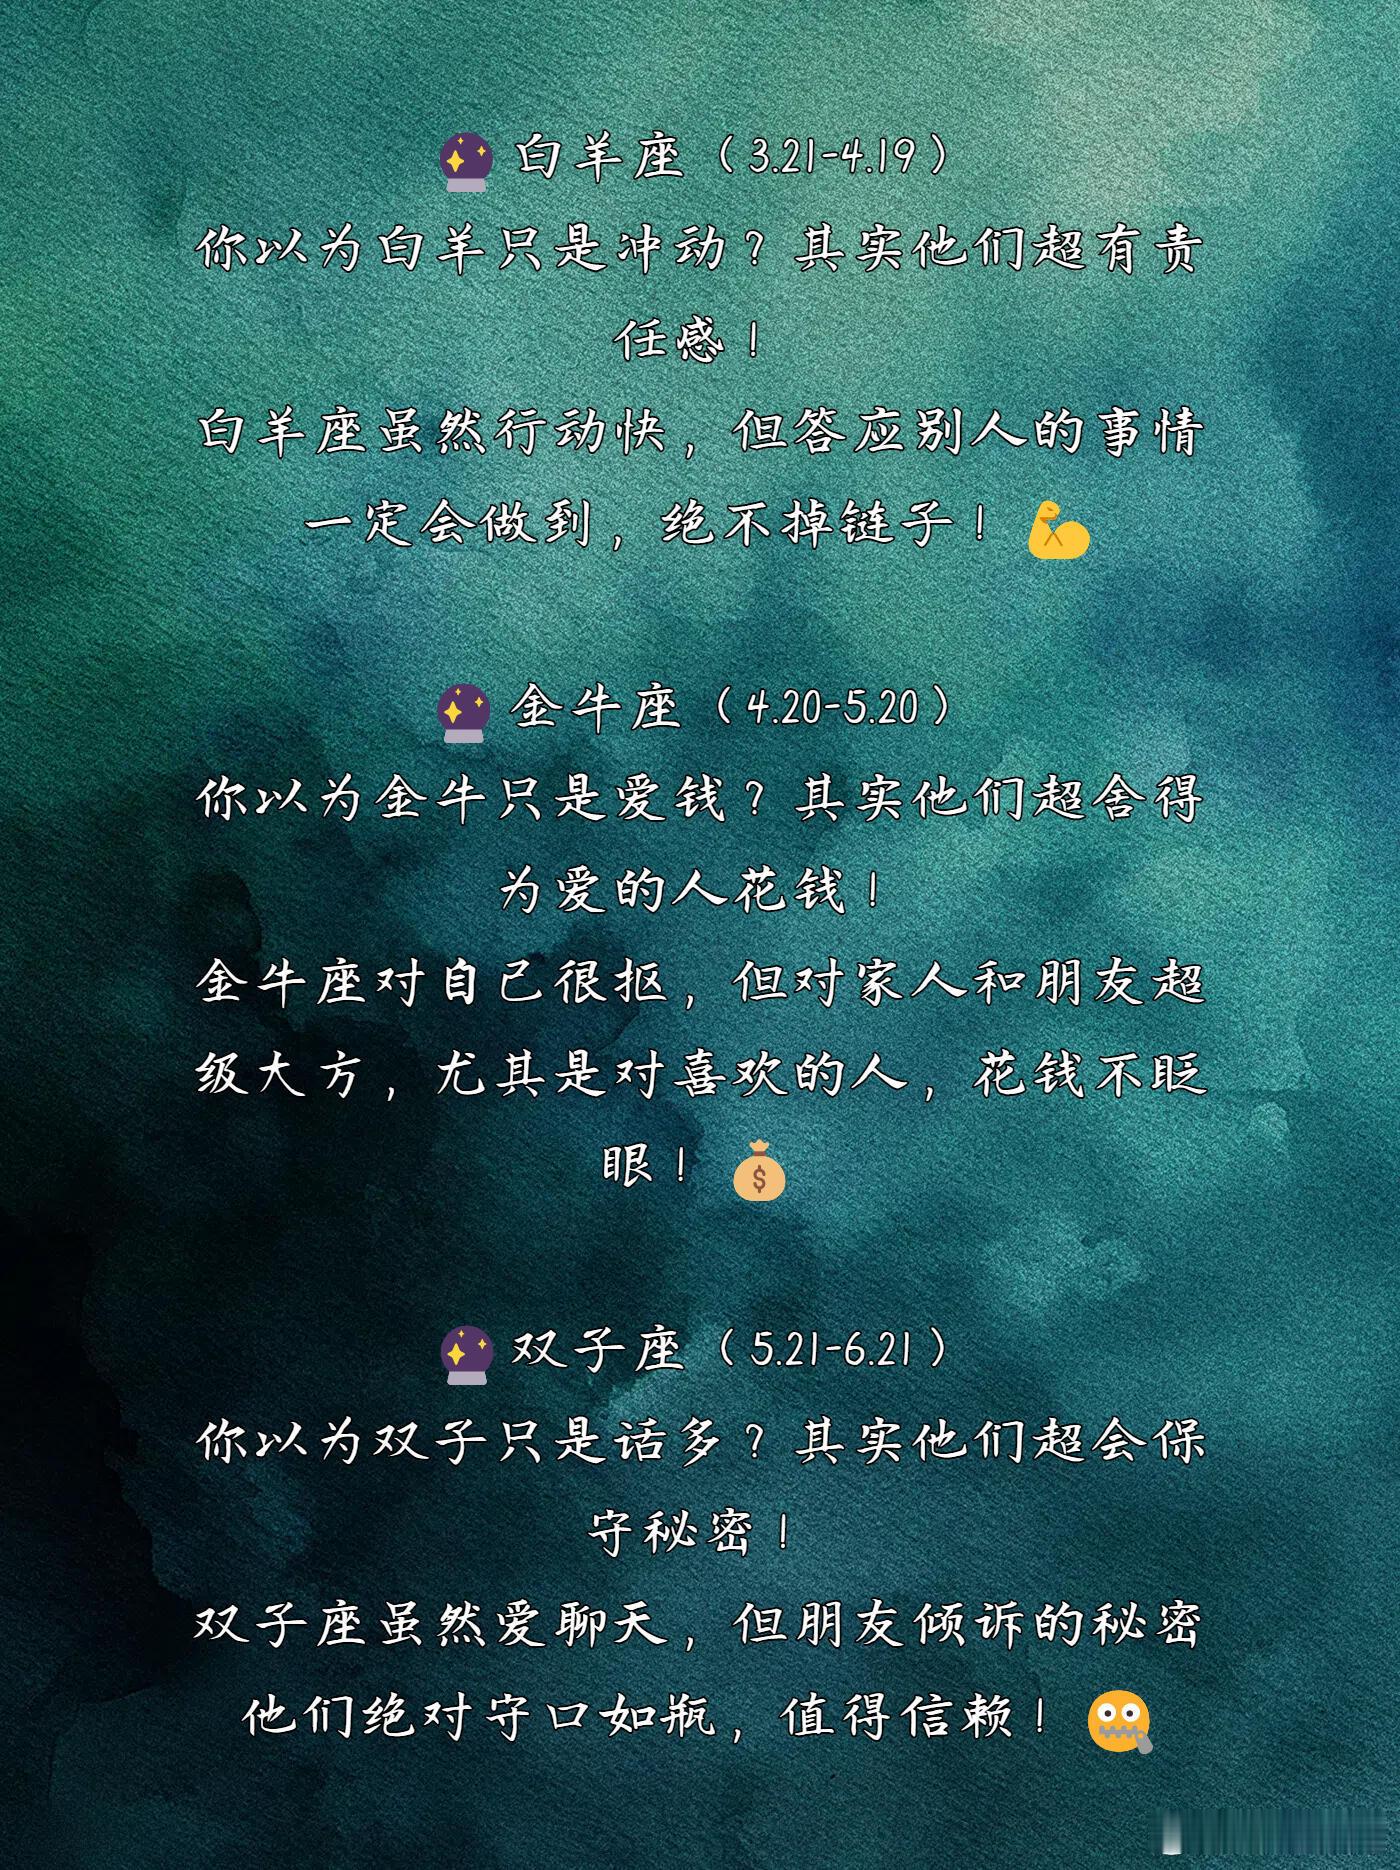 🔮 白羊座（3.21-4.19）
你以为白羊只是冲动？其实他们超有责
任感！
白羊座虽然行动快，但答应别人的事情
一定会做到，绝不掉链子！💪
🔮 金牛座（4.20-5.20）
你以为金牛只是爱钱？其实他们超舍得
为爱的人花钱！
金牛座对自己很抠，但对家人和朋友超
级大方，尤其是对喜欢的人，花钱不眨
眼！💰
🔮 双子座（5.21-6.21）
你以为双子只是话多？其实他们超会保
守秘密！
双子座虽然爱聊天，但朋友倾诉的秘密
他们绝对守口如瓶，值得信赖！🤐